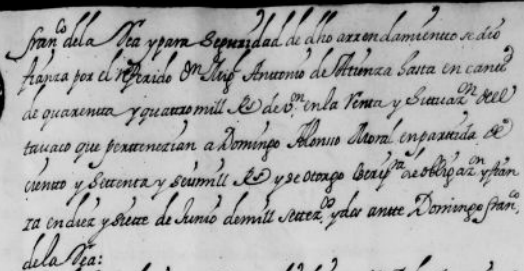 Fran.co dela Dea y para Seguridad de dho arrendamiento se dio
fianza por el referido Dn Migl Anttonio de Attienza hasta en cantd
de quarentta y quattro mill Rs de vn en la Rentta y Sittuazon del
tavaco que perttenezian a Domingo Alonso Moral en parttida de
ciento y settenta y seis mill Rs y se otorgo Scripra de obligazon y fian
za en diez y siette de Junio de mill settezos y dos antte Domingo Franco
dela Dea: